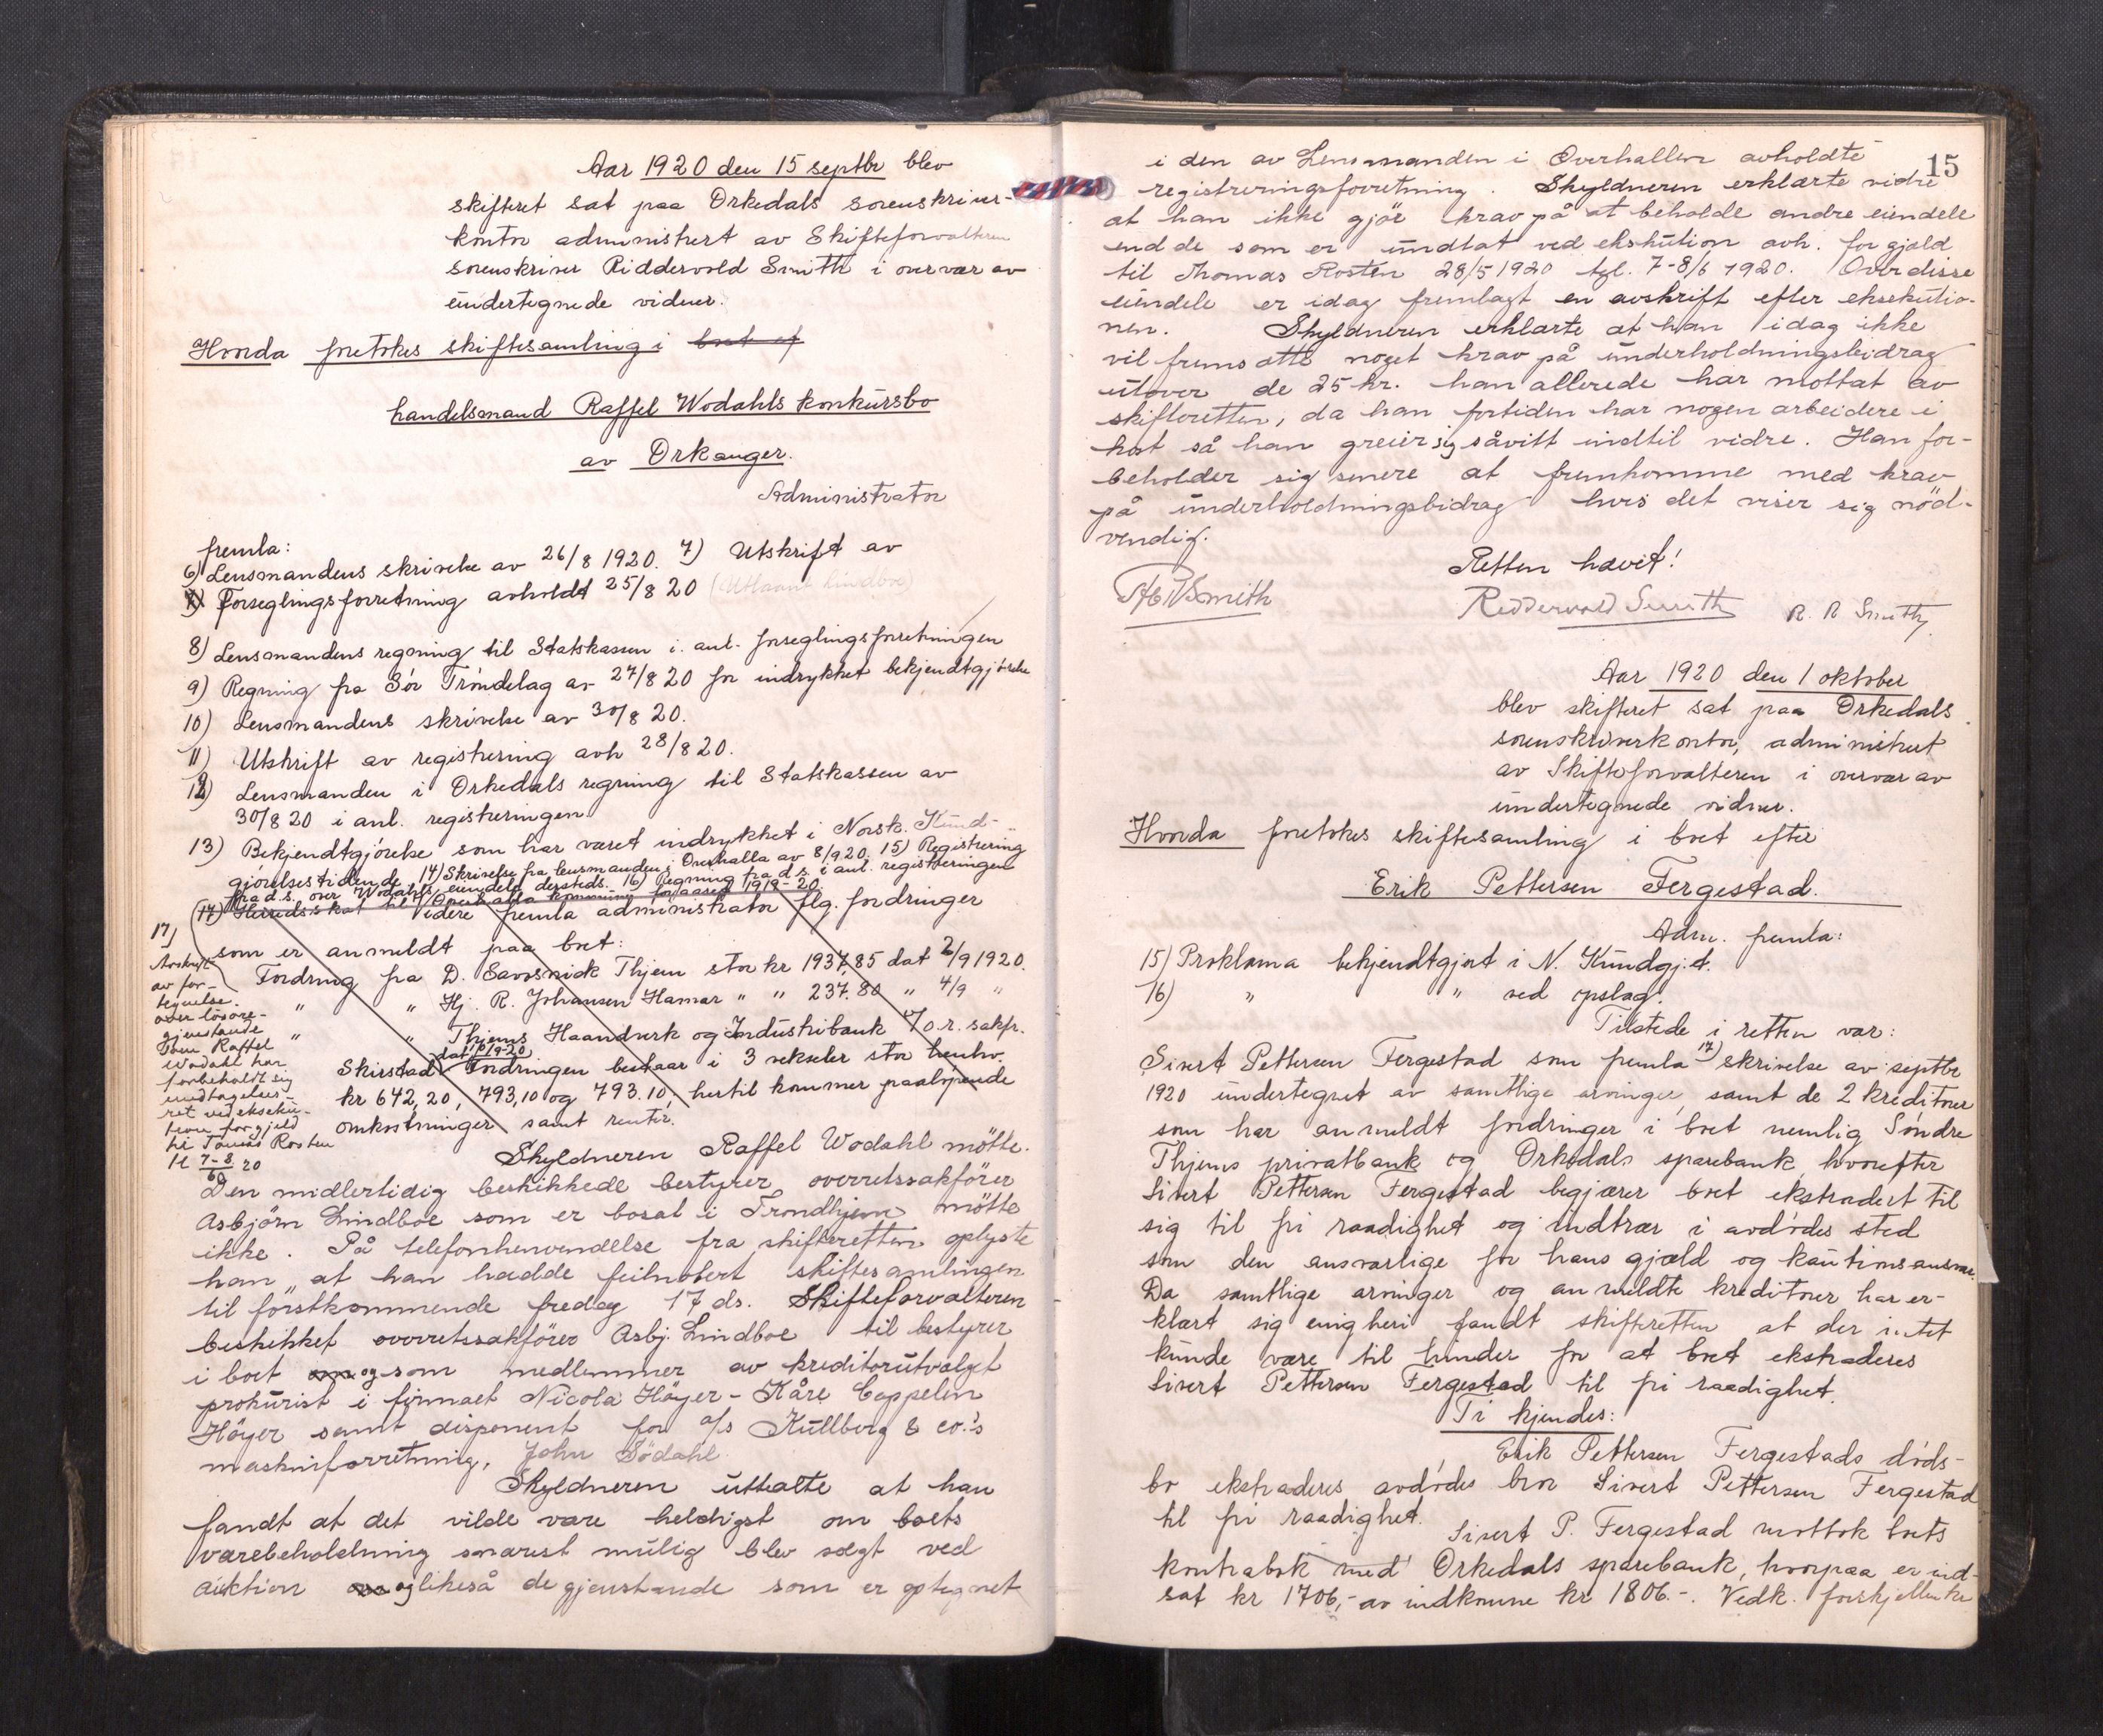 Aar 1920 den 15 septbr blev
skifteret sat paa Orkedals sorenskriver-
kontor administrert av Skifteforvalteren
sorenskriver Riddervold Smith i overvær av
undertegnede vidner.
Hvorda foretokes skiftesamling i boet af
handelsmand Raffel Wodahls konkursbo
av Orkanger.
Administrator
fremla:
6) Lensmandens skrivelse av 26/8 1920. 7) Utskrift av
Forseglingsforretning avholdt 25/8 20
8) Lensmandens regning til Statskassen i anl. forseglingsforretningen
9) Regning fra Sør Trøndelag av 27/8 20 for indrykket bekjendtgjørelse
10) Lensmandens skrivelse av 30/8 20.
11) Utskrift av registrering avh 28/8 20.
12) Lensmanden i Orkedals regning til Statskassen av
30/8 20 i anl. registreringen
13) Bekjendtgjørelse som har været indrykket i Norsk. Kund-
gjørelsestidende. 14) Skrivelse fra lensmanden i Overhalla av 8/9 20. 15) Registrering
fra d.s. over Wodahls eiendele dersteds. 16) Regning fra d.s. i anl. registreringen
17) Herredsskat til Overhalla kommune for aaret 1919-20.
Videre fremla administrator flg. fordringer
som er anmeldt paa boet:
Fordring fra D. Savosnick Thjem stor kr 1937,85 dat 2/9 1920.
" " Hj. R. Johansen Hamar " " 237.80 " 4/9 "
" " Thjems Haandverk og Industribank v/o.r. sakfr.
Skirstad dat 10/9-20 Fordringen bestaar i 3 veksler stor henhv.
kr 642,20, 793,10 og 793.10, hertil kommer paaløpende
omkostninger samt renter.
17)
Avskrift
av for-
tegnelse
over løsøre-
gjenstande
som Raffel
Wodahl har
forbeholdt sig
undtagelses-
ret ved ekseku-
tion for gjeld
til Tomas Rosten
7-8/6 20
Skyldneren Raffel Wodahl møtte.
Den midlertidig beskikkede bestyrer overretssakfører
Asbjørn Lindboe som er bosat i Trondhjem møtte
ikke. På telefonhenvendelse fra skifteretten oplyste
han, at han hadde feilnotert skiftesamlingen
til førstkommende fredag 17 ds. Skifteforvalteren
beskikket overretssakfører Asbj. Lindboe til bestyrer
i boet og som medlemmer av kreditorutvalget
prokurist i firmaet Nicola Høyer - Kåre Cappelen
Høyer samt disponent for a/s Kullberg & co.'s
maskinforretning, John Sødahl.
Skyldneren uttalte at han
fandt at det vilde være heldigst om boets
varebeholdning snarest mulig blev solgt ved
auktion og likeså de gjenstande som er optegnet
15
i den av Lensmanden i Overhallen avholdte
registreringsforretning. Skyldneren erklærte vidre
at han ikke gjör krav på at beholde andre eiendele
end de som er undtat ved ekskution avh. for gjæld
til Thomas Rosten 28/5 1920 tgl. 7-8/6 1920. Over disse
eiendele er idag fremlagt en avskrift efter eksekutio-
nen. Skyldneren erklærte at han idag ikke
vil fremsætte noget krav på underholdningsbidrag
utover de 25 kr. han allerede har mottat av
skifteretten, da han fortiden har nogen arbeidere i
kost så han greier sig såvitt indtil vidre. Han for-
beholder sig senere at fremkomme med krav
på underholdningsbidrag hvis det viser sig nød-
vendig.
Retten hævet!
Riddervold Smith R. R Smith
Aar 1920 den 1 oktober
blev skifteret sat paa Orkedals
sorenskriverkontor, administrert
av Skifteforvalteren i overvær av
undertegnede vidner.
Hvorda foretokes skiftesamling i boet efter
Erik Pettersen Fergestad.
Adm. fremla:
15) Proklama bekjendtgjort i N. Kundgj.t.
16) " " ved opslag.
Tilstede i retten var:
Sivert Pettersen Fergestad som fremla 17) skrivelse av septbr
1920 undertegnet av samtlige arvinger, samt de 2 kreditorer
som har anmeldt fordringer i boet nemlig Søndre
Thjems privatbank og Orkedals sparebank, hvorefter
Sivert Pettersen Fergestad begjærer boet ekstradert til
sig til fri raadighet og indtrær i avdødes sted
som den ansvarlige for hans gjæld og kautionsansvar.
Da samtlige arvinger og anmeldte kreditorer har er-
klært sig enig heri fandt skifteretten at der intet
kunde være til hinder for at boet ekstraderes
Sivert Pettersen Fergestad til fri raadighet.
Ti kjendes:
Erik Pettersen Fergestads døds-
bo ekstraderes avdødes bror Sivert Pettersen Fergestad
til fri raadighet.
Sivert P. Fergestad mottok boets
kontrabok med Orkedals sparebank, hvorpaa er ind-
sat kr 1706,- av indkomne kr 1806.-. Vedk. forskjellen kr